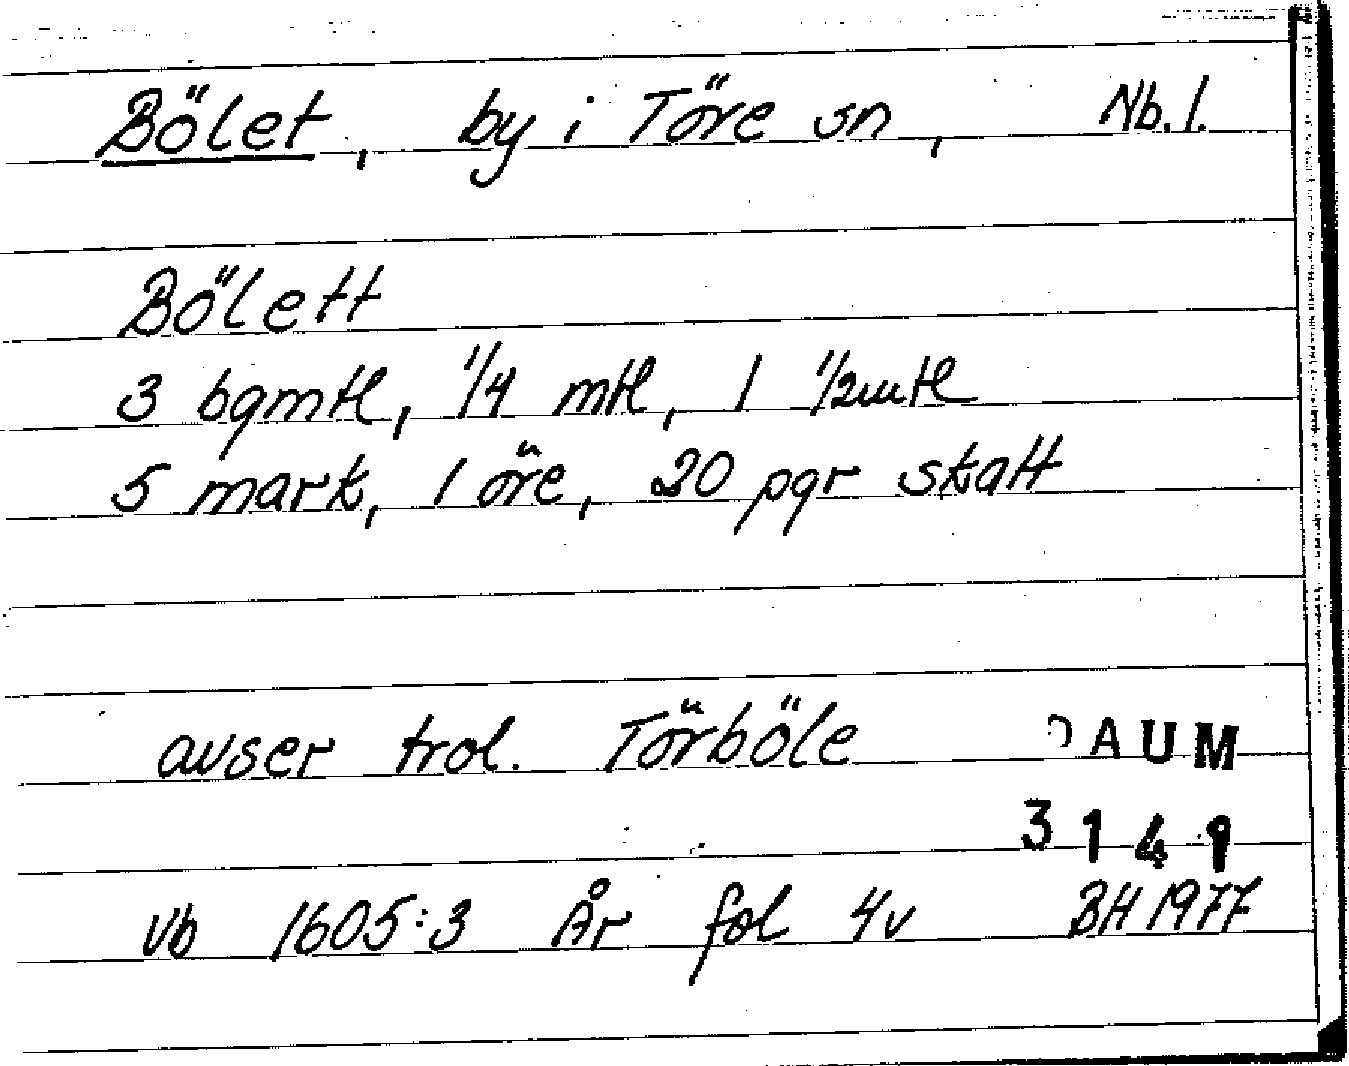 Bölet, by i Töre sn, Nb. l.
Bölett
3 bgmtl, 1/4 mtl, 1 1/2mtl
5 mark, 1 öre, 20 pgr skatt
avser trol. Törböle
DAUM
3149
Vb 1605:3 År fol 4v BH 1977